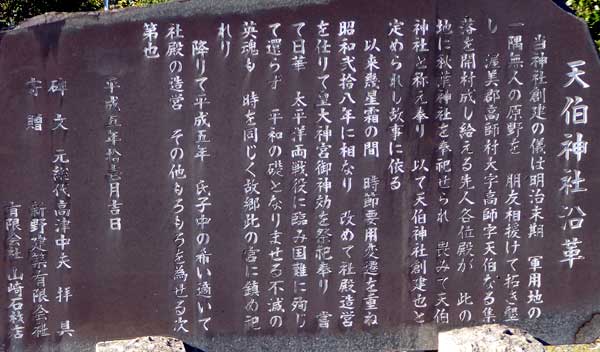 天伯神社沿革
当神社創建の儀は明治末期 軍用地の
一隅無人の原野を 朋友相援けて拓き墾
し 渥美郡高師村大字高師字天伯なる集
落を開村成し給える先人各位殿が 此の
地に秋葉神社を奉祀せられ 畏みて天伯
神社と称え奉り 以て天伯神社創建也と
定められし故事に依る
以来幾星霜の間 時節要用変遷を重ね
昭和弐拾八年に相なり 改めて社殿造営
を仕りて皇大神宮御神効を祭祀奉り 嘗
て日華 太平洋両戦役に臨み国難に殉じ
て還らず 平和の礎となりませる不滅の
英魂も 時を同じく故郷此の宮に鎮め祀
れり
降りて平成五年 氏子中の希い適いて
社殿の造営 その他もろもろを為せる次
第也
平成五年拾壱月吉日
碑文 元総代高津中夫 拝具
寄贈 新野建築有限会社
有限会社 山崎石材店